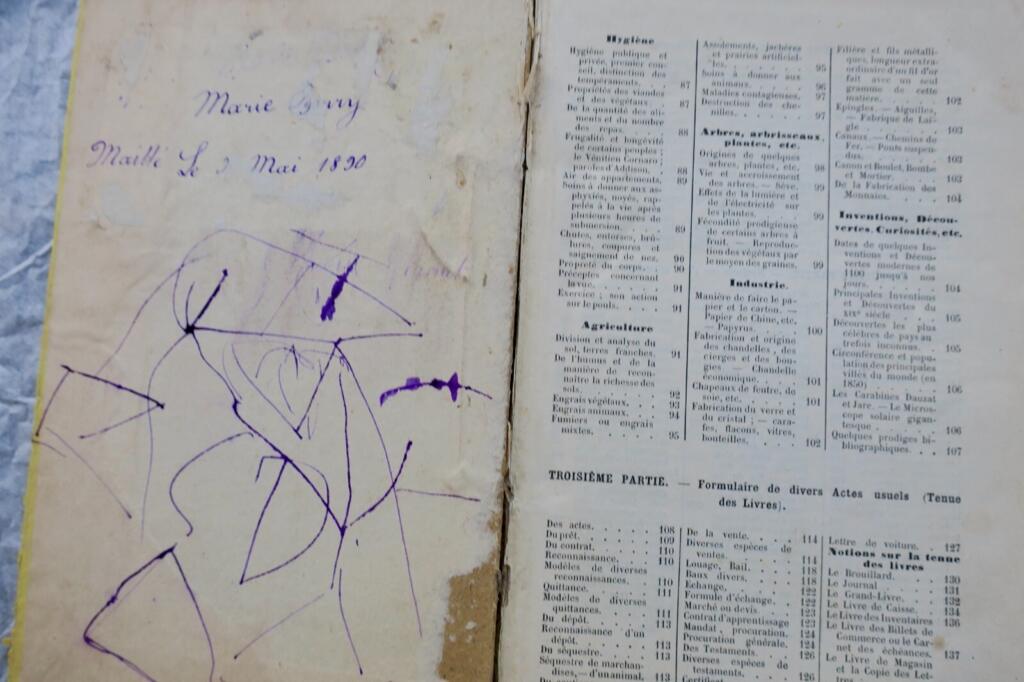 Marie
Maillé Le 2 Mai 1890
Hygiène
Hygiène publique et
privée, premier con-
seil, distinction des
tempéraments. 87
Propriétés des viandes
et des végétaux. 87
De la quantité des ali-
ments et du nombre
des repas. 88
Frugalité et longévité
de certains peuples ;
le Vénitien Cornaro ;
paroles d'Addison. 88
Air des appartements. 89
Soins à donner aux as-
phyxiés, noyés, rap-
pelés à la vie après
plusieurs heures de
submersion. 89
Chutes, entorses, brû-
lures, coupures et
saignement de nez. 90
Propreté du corps. 90
Préceptes concernant
la vue. 91
Exercice ; son action
sur le pouls. 91
Agriculture
Division et analyse du
sol, terres franches. 91
De l'humus et de la
manière de recon-
naître la richesse des
sols. 92
Engrais végétaux. 93
Engrais animaux. 94
Fumiers ou engrais
mixtes. 95
Assolements, jachères
et prairies artificiel-
les. 95
Soins à donner aux
animaux. 96
Maladies contagieuses. 97
Destruction des che-
nilles. 97
Arbres, arbrisseaux,
plantes, etc.
Origines de quelques
arbres, plantes, etc. 98
Vie et accroissement
des arbres. — Sève. 99
Effets de la lumière et
de l'électricité sur
les plantes. 99
Fécondité prodigieuse
de certains arbres à
fruit. — Reproduc-
tion des végétaux par
le moyen des graines. 99
Industrie.
Manière de faire le pa-
pier et le carton. —
Papier de Chine, etc.
— Papyrus. 100
Fabrication et origine
des chandelles, des
cierges et des bou-
gies. — Chandelle
économique. 101
Chapeaux de feutre, de
soie, etc. 101
Fabrication du verre et
du cristal ; — cara-
fes, flacons, vitres,
bouteilles. 102
Filière et fils métalli-
ques, longueur extra-
ordinaire d'un fil d'or
fait avec un seul
gramme de cette
matière. 102
Epingles. — Aiguilles.
— Fabrique de Lai-
gle. 103
Canaux. — Chemins de
Fer. — Ponts suspen-
dus. 103
Canon et Boulet, Bombe
et Mortier. 103
De la Fabrication des
Monnaies. 104
Inventions, Décou-
vertes, Curiosités, etc.
Dates de quelques In-
ventions et Décou-
vertes modernes de
1100 jusqu'à nos
jours. 104
Principales Inventions
et Découvertes du
XIXe siècle 105
Découvertes les plus
célèbres de pays au-
trefois inconnus. 105
Circonférence et popu-
lation des principales
villes du monde (en
1850) 106
Les Carabines Dauzat
et Jare. — Le Micros-
cope solaire gigan-
tesque 106
Quelques prodiges bi-
bliographiques. 107
TROISIÈME PARTIE. — Formulaire de divers Actes usuels (Tenue
des Livres).
Des actes. 108
Du prêt. 109
Du contrat. 110
Reconnaissance. 110
Modèles de diverses
reconnaissances. 110
Quittance. 111
Modèles de diverses
quittances. 111
Du dépôt. 113
Reconnaissance d'un
dépôt. 113
Du séquestre. 113
Séquestre de marchan-
dises, — d'un animal. 113
De la vente. 114
Diverses espèces de
ventes. 114
Louage, Bail. 118
Baux divers. 118
Echange. 122
Formule d'échange. 122
Marché ou devis. 123
Contrat d'apprentissage 123
Mandat, procuration. 124
Procuration générale. 124
Des Testaments. 126
Diverses espèces de
testaments. 126
Lettre de voiture. 127
Notions sur la tenue
des livres
Le Brouillard. 130
Le Journal 131
Le Grand-Livre. 132
Le Livre de Caisse. 134
Le Livre des Inventaires 136
Le Livre des Billets de
Commerce ou le Car-
net des échéances. 137
Le Livre de Magasin
et la Copie des Let-
tres.